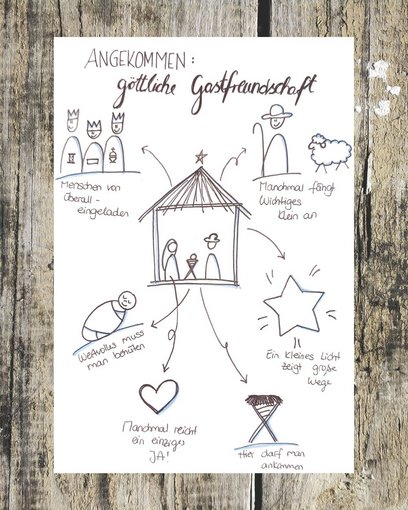 ANGEKOMMEN:
göttliche Gastfreundschaft
Menschen von
überall -
eingeladen
Manchmal fängt
Wichtiges
klein an
Wertvolles muss
man behüten
Ein kleines Licht
zeigt große
Wege
Manchmal reicht
ein einziges
JA!
Hier darf man
ankommen